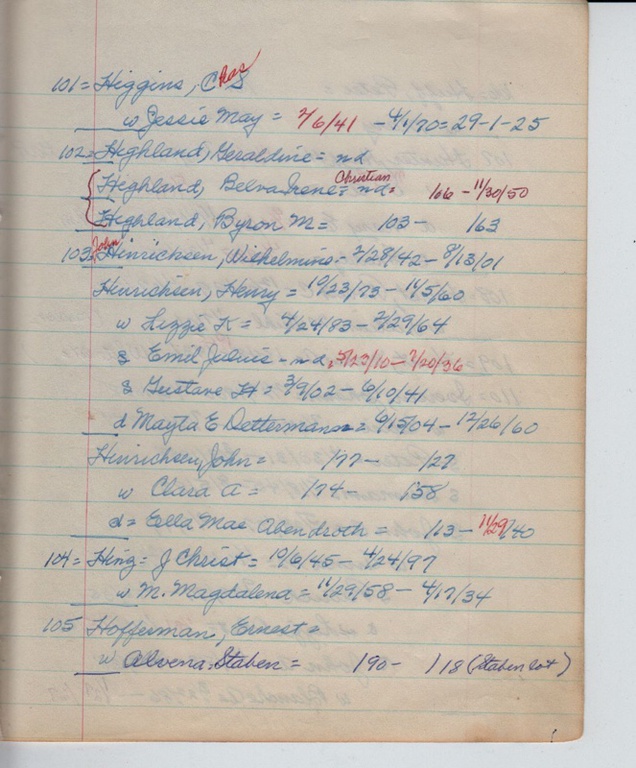 101 = Higgins, Chas S
w Jessie May = 2/6/41 - 4/1/70 = 29-1-25
102 = Highland, Geraldine = nd
Highland, Belva Irene = Christian nd = 106 - 11/30/50
Highland, Byron M = 103 - 163
103 = John Hinrichsen, Wilhelmina - 2/28/42 - 8/13/01
Henrichsen, Henry = 10/23/73 - 11/5/60
w Lizzie K = 4/24/83 - 2/29/64
s Emil Julius - nd, 5/23/10 - 7/20/36
s Gustave H = 3/9/02 - 6/10/41
d Mayta E Dettermann = 6/15/04 - 12/26/60
Hinrichsen, John = 177 - 127
w Clara A = 174 - 158
d = Ella Mae Abendroth = 113 - 11/29/40
104 = Hing = J Christ = 10/6/45 - 4/24/97
w M. Magdalena = 11/29/58 - 4/17/34
105 Hofferman, Ernest =
w Alvena Staben = 190 - 118 (Staben lot)